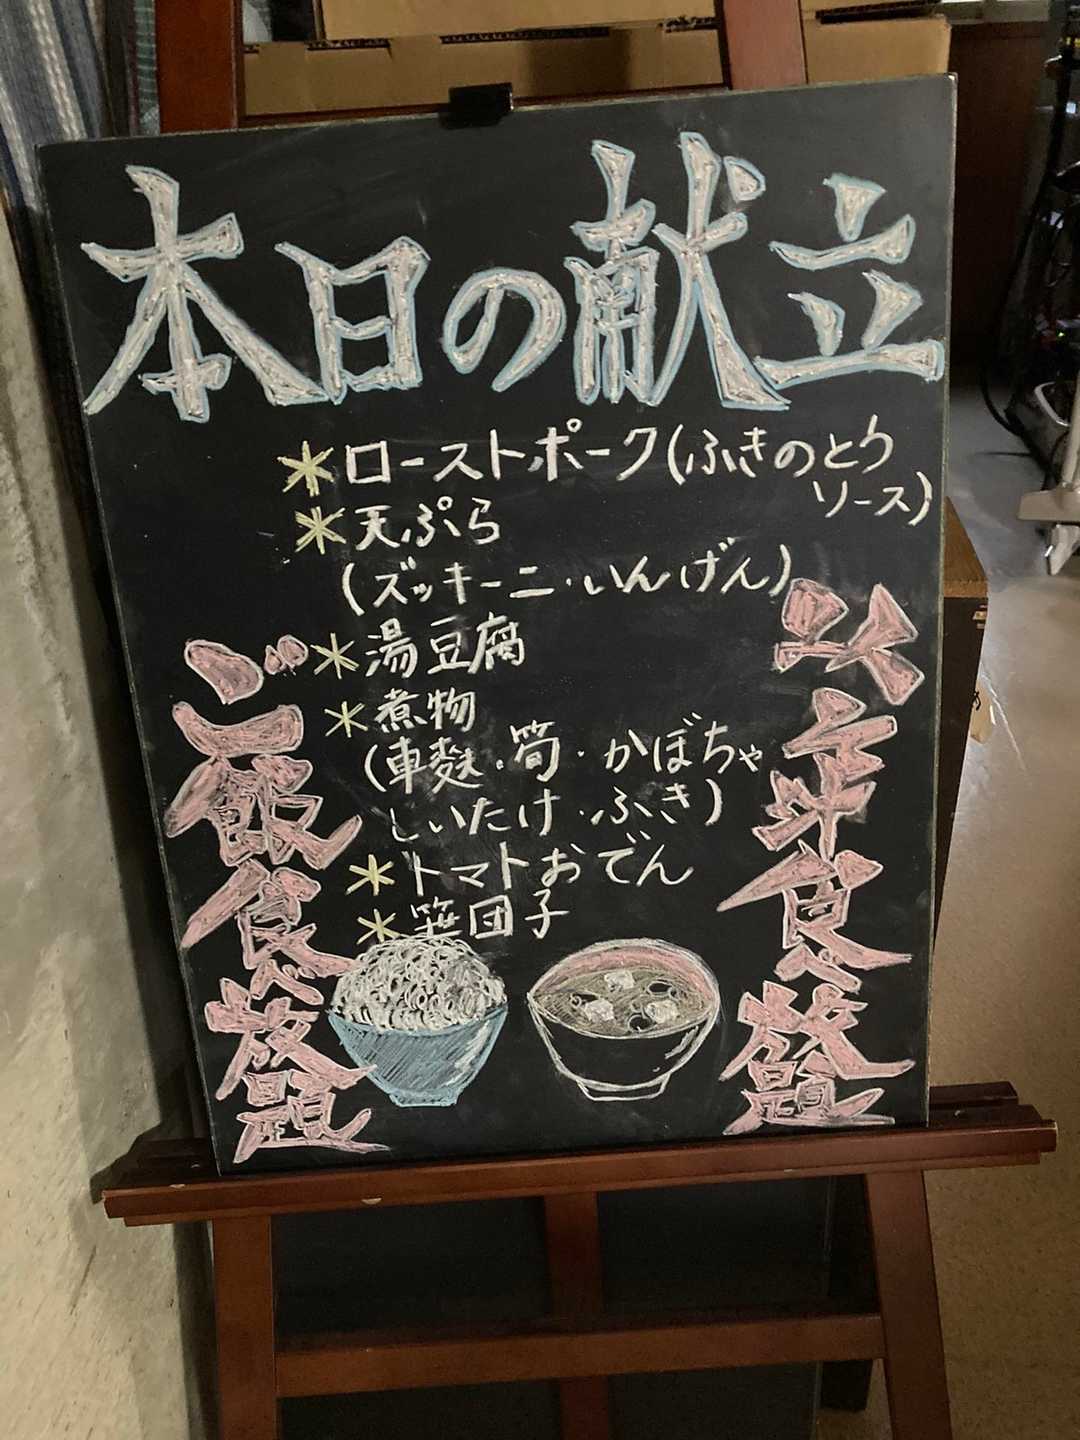 本日の献立
*ローストポーク(ふきのとう
ソース)
*天ぷら
(ズッキーニ・いんげん)
*湯豆腐
*煮物
(車麩・筍・かぼちゃ
しいたけ・ふき)
*トマトおでん
*笹団子
ご飯食べ放題
食べ放題